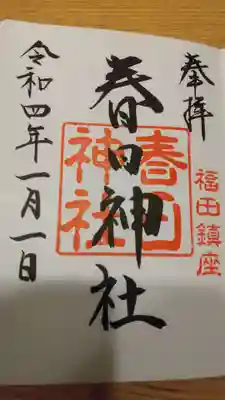 奉拝
福田鎮座
春日神社
春日
神社
令和四年一月一日